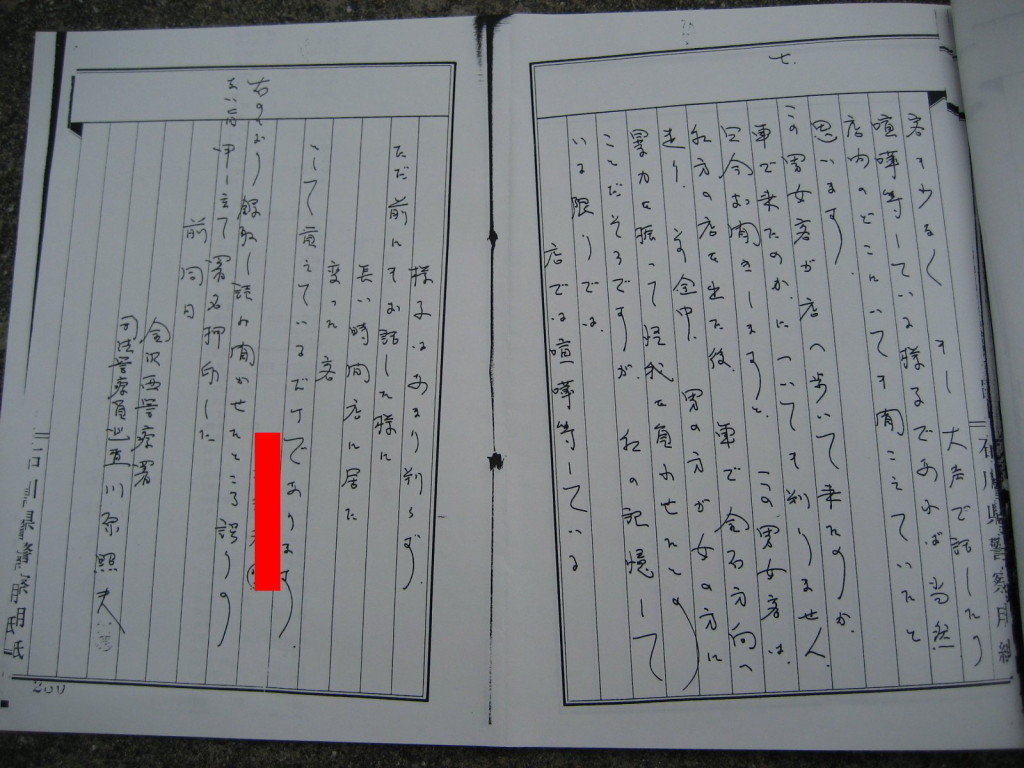 七
客も少なく もし 大声で話したり
喧嘩等している様子であれば 当然
店内のどこにいても聞こえていたと
思います。
この男女客が 店へ歩いて来たのか
車で来たのかについても判りません
只今お聞きしますと この男女客は
私方の店を出た後 車で 金石方向へ
走り、その途中 男の方が女の方に
暴力を振って怪我を負わせたとの
ことだそうですが 私の記憶して
いる限りでは、
店では喧嘩等している
様子はあまり判らず
ただ前にもお話した様に
長い時間店に居た
変った客
として覚えているだけであります。
右のとおり録取し読み聞かせたところ誤りの
ない旨申し立て署名押印した
前同日
金沢西警察署
司法警察員巡査 川原照夫
石川県警察用紙